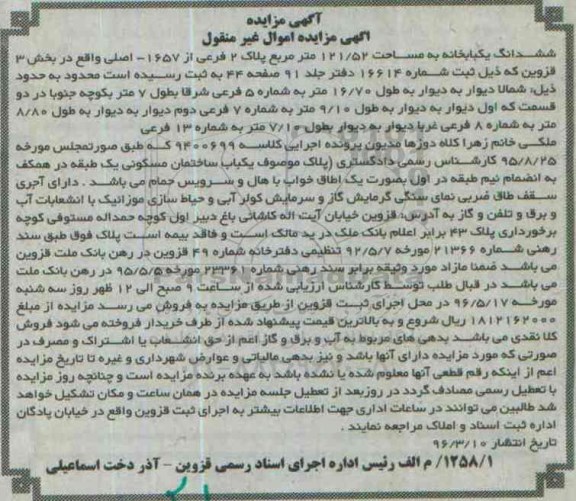 آگهی مزایده
آگهی مزایده اموال غیر منقول
ششدانگ یکبابخانه به مساحت ۱۲۱/۵۲ متر مربع پلاک ۲ فرعی از ۱۶۵۷- اصلی واقع در بخش ۳
قزوین که ذیل ثبت شماره ۱۶۶۱۴ دفتر جلد ۹۱ صفحه ۴۴ به ثبت رسیده است محدود به حدود
ذیل، شمالا دیوار به دیوار به طول ۱۶/۷۰ متر به شماره ۵ فرعی شرقا بطول ۷ متر بکوچه جنوبا در دو
قسمت که اول دیوار به دیوار به طول ۹/۱۰ متر به شماره ۷ فرعی دوم دیوار به دیوار به طول ۸/۸۰
متر به شماره ۸ فرعی غربا دیوار به دیوار بطول ۷/۱۰ متر به شماره ۱۳ فرعی
ملکی خانم زهرا کلاه دوزها مدیون پرونده اجرایی کلاسه ۹۴۰۰۶۹۹ که طبق صورتمجلس مورخه
۹۵/۸/۲۵ کارشناس رسمی دادگستری (پلاک موصوف یکباب ساختمان مسکونی یک طبقه در همکف
به انضمام نیم طبقه در اول بصورت یک اطاق خواب با هال و سرویس حمام می باشد . دارای آجری
سقف طاق ضربی نمای سنگی گرمایش گاز و سرمایش کولر آبی و حیاط سازی موزائیک با انشعابات آب
و برق و تلفن و گاز به آدرس: قزوین خیابان آیت اله کاشانی باغ دبیر اول کوچه حمداله مستوفی کوچه
برخورداری پلاک ۴۳ برابر اعلام بانک ملک در ید مالک است و فاقد بیمه است پلاک فوق طبق سند
رهنی شماره ۲۱۳۶۶ مورخه ۹۲/۵/۷ تنظیمی دفترخانه شماره ۴۹ قزوین در رهن بانک ملت قزوین
می باشد ضمنا مازاد مورد وثیقه برابر سند رهنی شماره ۲۳۳۶۱ مورخه ۹۵/۵/۵ در رهن بانک ملت
می باشد در قبال طلب توسط کارشناس ارزیابی شده از ساعت ۹ صبح الی ۱۲ ظهر روز سه شنبه
مورخه ۹۶/۵/۱۷ در محل اجرای ثبت قزوین از طریق مزایده به فروش می رسد مزایده از مبلغ
۱۸۱۲۱۶۲۰۰۰ ریال شروع و به بالاترین قیمت پیشنهاد شده از طرف خریدار فروخته می شود فروش
کلا نقدی می باشد بدهی های مربوط به آب و برق و گاز اعم از حق انشعاب یا اشتراک و مصرف در
صورتی که مورد مزایده دارای آنها باشد و نیز بدهی مالیاتی و عوارض شهرداری و غیره تا تاریخ مزایده
اعم از اینکه رقم قطعی آنها معلوم شده یا نشده باشد به عهده برنده مزایده است و چنانچه روز مزایده
با تعطیل رسمی مصادف گردد در روز بعد از تعطیل جلسه مزایده در همان ساعت و مکان تشکیل خواهد
شد طالبین می توانند در ساعات اداری جهت اطلاعات بیشتر به اجرای ثبت قزوین واقع در خیابان پادگان
اداره ثبت اسناد و املاک مراجعه نمایند .
تاریخ انتشار ۹۶/۳/۱۰
۱۲۵۸/۱/ م الف رئیس اداره اجرای اسناد رسمی قزوین – آذر دخت اسماعیلی